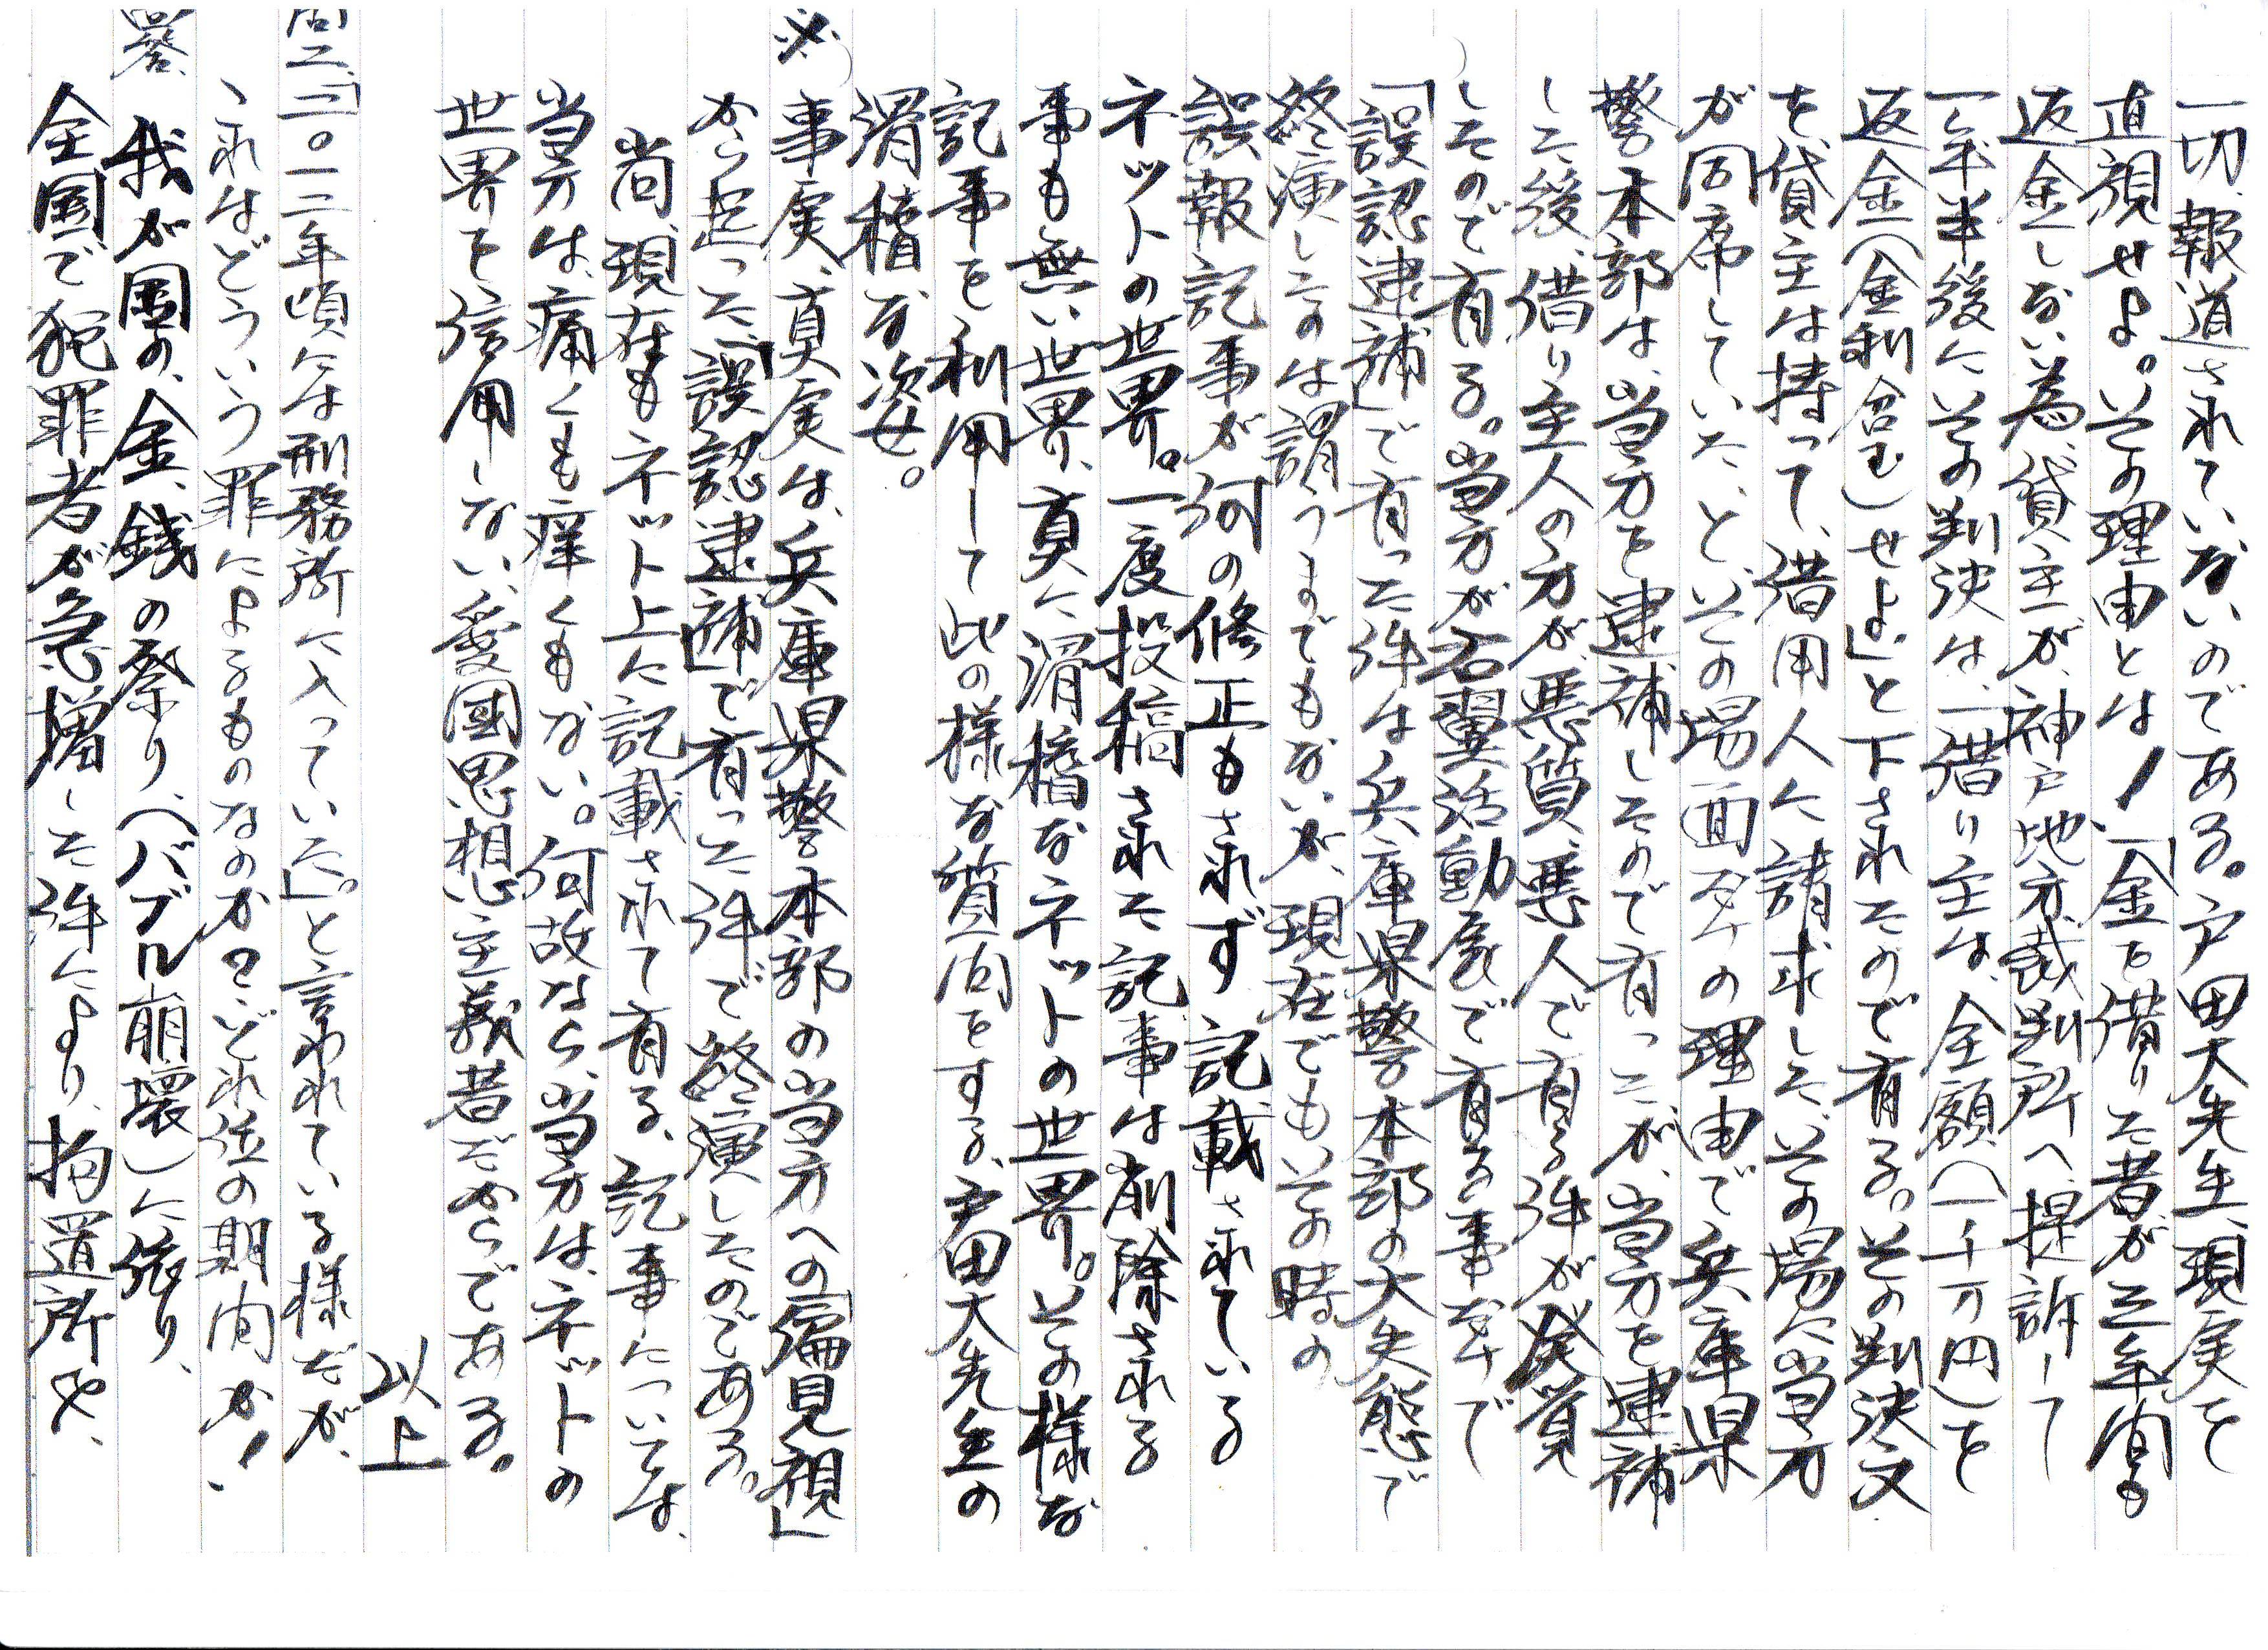 一切、報道されていないのである。戸田大先生、現実を
直視せよ。その理由とは！、「金を借りた者が三年間も
返金しない為、貸主が、神戸地方裁判所へ、提訴して
一年半後にその判決は、「借り主は、全額(一千万円)を
返金(金利含む)せよ」と下されたので有る。その判決文
を、貸主は持って、借用人に請求した、その場に当方
が同席していた、と、その場面だけの理由で兵庫県
警本部は、当方を逮捕したので有ったが、当方を逮捕
した後、借り主人の方が、悪質、悪人で有る件が発覚
したので有る。当方が右翼活動家で有る事だけで
「誤認逮捕」で有った件は兵庫県警本部の大失態で
終演したのは謂うまでもないが、現在でも、その時の
誤報記事が何の修正もされず記載されている
ネットの世界。一度投稿された記事は削除される
事も無い世界、真に滑稽なネットの世界。その様な
記事を利用して此の様な質問をする、戸田大先生の
滑稽な姿。
※)事実、真実は、兵庫県警本部の当方への「偏見視」
から起った「誤認逮捕」で有った件で終演したのである。
尚、現在もネット上に記載されて有る、記事については、
当方は、痛くも痒くもない。何故なら、当方は、ネットの
世界を信用しない、愛國思想主義者だからである。
以上
問二、「二〇一二年頃には刑務所に入っていた」。と言われている様だが、
これはどういう罪によるものなのか？、どれ位の期間か！、
答、我が國の、金、銭の祭り、(バブル崩壊)に依り、
全國で犯罪者が急増した件により、拘置所や、